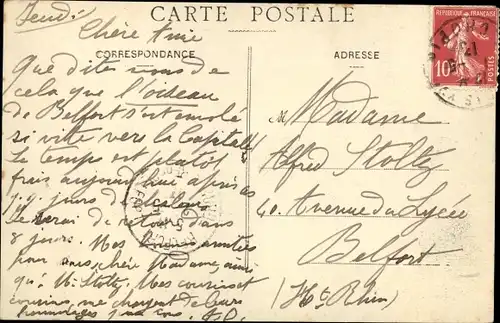 CARTE POSTALE
Jeudi
Chère Amie
CORRESPONDANCE
Que dites vous de
cela que l'oiseau
de Belfort s'est envolé
si vite vers la Capitale
Le temps est plutôt
frais aujourd'hui après
jours de chaleur
Je serai de retour dans
8 jours. Mes bonnes amitiés
pour vous, chère Madame, ainsi
qu'à Mr Stoltz, Mes cousines et
cousins, me chargent de leurs
hommages pour vous.
ADRESSE
Madame
Alfred Stoltz
40. Avenue du Lycée
Belfort
(Ht Rhin)
REPUBLIQUE FRANÇAISE
10
POSTES